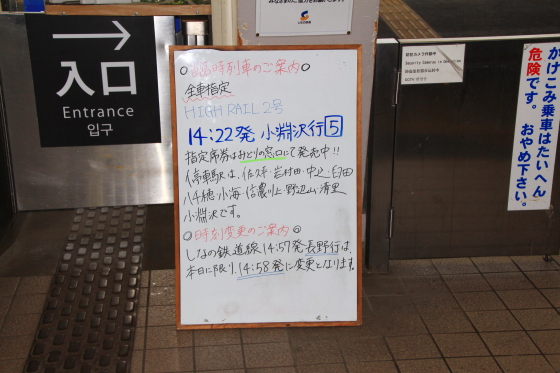 入口
Entrance
입구
○臨時列車のご案内○
全車指定
HIGH RAIL 2号
14:22発 小淵沢行 5
指定席券はみどりの窓口にて発売中!!
停車駅は、佐久平・岩村田・中込・臼田
八千穂・小海・信濃川上・野辺山・清里
小淵沢です。
○時刻変更のご案内○
しなの鉄道線14:57発長野行は、
本日に限り、14:58発に変更となります。
防犯カメラ作動中
Security Cameras in Operation
かけこみ乗車はたいへん
危険です。おやめ下さい。